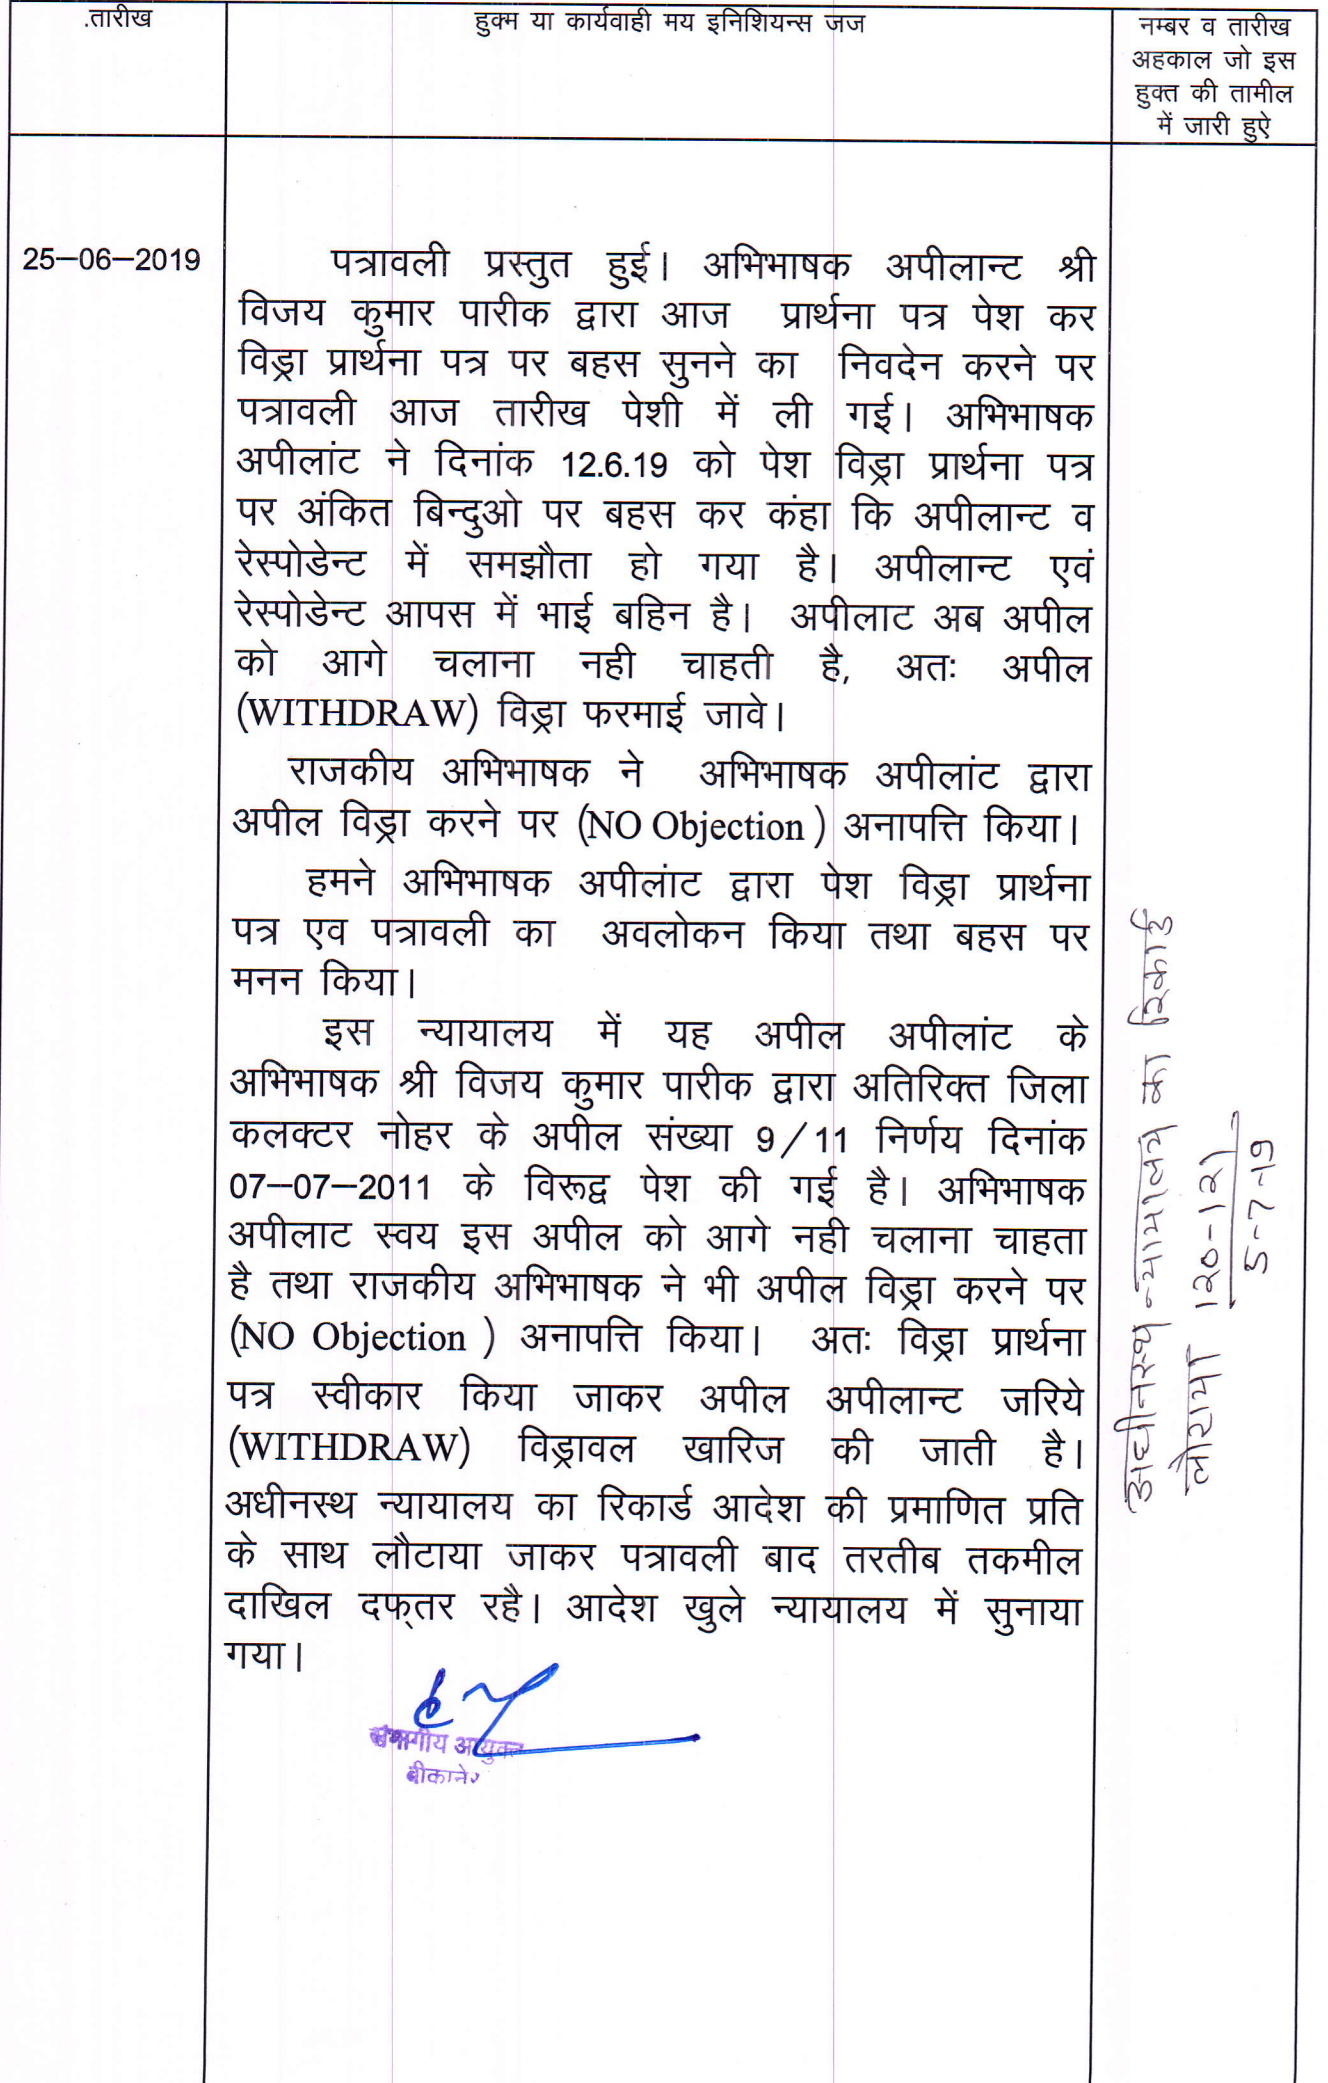 .तारीख
हुक्म या कार्यवाही मय इनिशियन्स जज
नम्बर व तारीख
अहकाल जो इस
हुक्त की तामील
में जारी हुऐ
25–06–2019
पत्रावली प्रस्तुत हुई। अभिभाषक अपीलान्ट श्री
विजय कुमार पारीक द्वारा आज प्रार्थना पत्र पेश कर
विड्रा प्रार्थना पत्र पर बहस सुनने का निवदेन करने पर
पत्रावली आज तारीख पेशी में ली गई। अभिभाषक
अपीलांट ने दिनांक 12.6.19 को पेश विड्रा प्रार्थना पत्र
पर अंकित बिन्दुओ पर बहस कर कंहा कि अपीलान्ट व
रेस्पोडेन्ट में समझौता हो गया है। अपीलान्ट एवं
रेस्पोडेन्ट आपस में भाई बहिन है। अपीलाट अब अपील
को आगे चलाना नही चाहती है, अतः अपील
(WITHDRAW) विड्रा फरमाई जावे।
राजकीय अभिभाषक ने अभिभाषक अपीलांट द्वारा
अपील विड्रा करने पर (NO Objection ) अनापत्ति किया।
हमने अभिभाषक अपीलांट द्वारा पेश विड्रा प्रार्थना
पत्र एव पत्रावली का अवलोकन किया तथा बहस पर
मनन किया।
इस न्यायालय में यह अपील अपीलांट के
अभिभाषक श्री विजय कुमार पारीक द्वारा अतिरिक्त जिला
कलक्टर नोहर के अपील संख्या 9/11 निर्णय दिनांक
07–07–2011 के विरूद्व पेश की गई है। अभिभाषक
अपीलाट स्वय इस अपील को आगे नही चलाना चाहता
है तथा राजकीय अभिभाषक ने भी अपील विड्रा करने पर
(NO Objection ) अनापत्ति किया। अतः विड्रा प्रार्थना
पत्र स्वीकार किया जाकर अपील अपीलान्ट जरिये
(WITHDRAW) विड्रावल खारिज की जाती है।
अधीनस्थ न्यायालय का रिकार्ड आदेश की प्रमाणित प्रति
के साथ लौटाया जाकर पत्रावली बाद तरतीब तकमील
दाखिल दफ्तर रहै। आदेश खुले न्यायालय में सुनाया
गया।
संभागीय आयुक्त
बीकानेर
अधीनस्थ न्यायालय का रिकार्ड
लौटाया 120-121
5-7-19